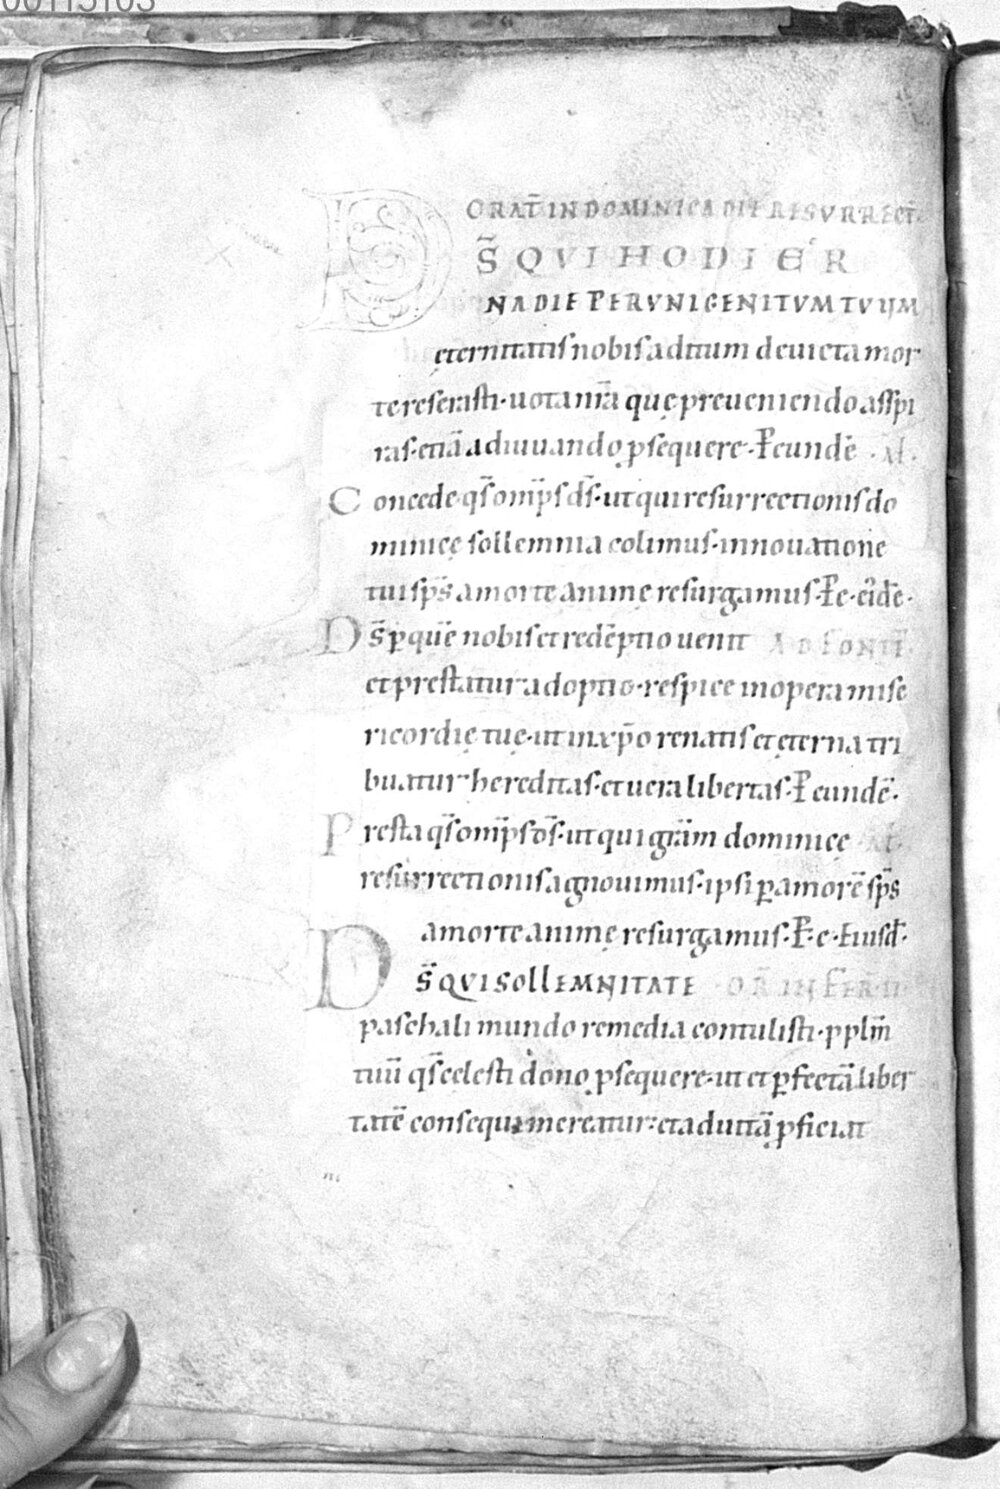 00115103
ORAT̅ IN DOMINICA DIE RESVRRECT̅.
D S̅ QVI HODIER
NA DIE P̅ER VNIGENITVM TVVM
ęternitatis nobis aditum deuicta mor
te reserasti· uota nr̅a quę preueniendo asspi
ras· etia̅ adiuuando ꝓsequere· P̅ eunde̅ · Al̅·
Concede qs̅ omp̅s ds̅· ut qui resurrectionis do
minicę sollemnia colimus· innouatione
tui sp̅s a morte animę resurgamus· P̅ e· eide̅·
Ds̅ p̲ que̅ nobis et rede̅ptio uenit AD FONTE̅·
et prestatur adoptio· respice in opera mise
ricordię tuę· ut in xp̅o renatis et ęterna tri
buatur hereditas· et uera libertas· P̅ eunde̅·
Presta qs̅ omp̅s ds̅· ut qui gr̅am dominicę Al̅·
resurrectionis agnouimus· ipsi p̲ amore̅ sp̅s
a morte animę resurgamus· P̅· e· Eiusd̅·
DS̅ QVI SOLLEMNITATE · OR̅ IN FER̅ II·
paschali mundo remedia contulisti· pplm̅
tuu̅ qs̅ celesti dono ꝓsequere· ut et p̲fecta̅ liber
tate̅ consequi mereatur· et ad uita̅ ꝓficiat